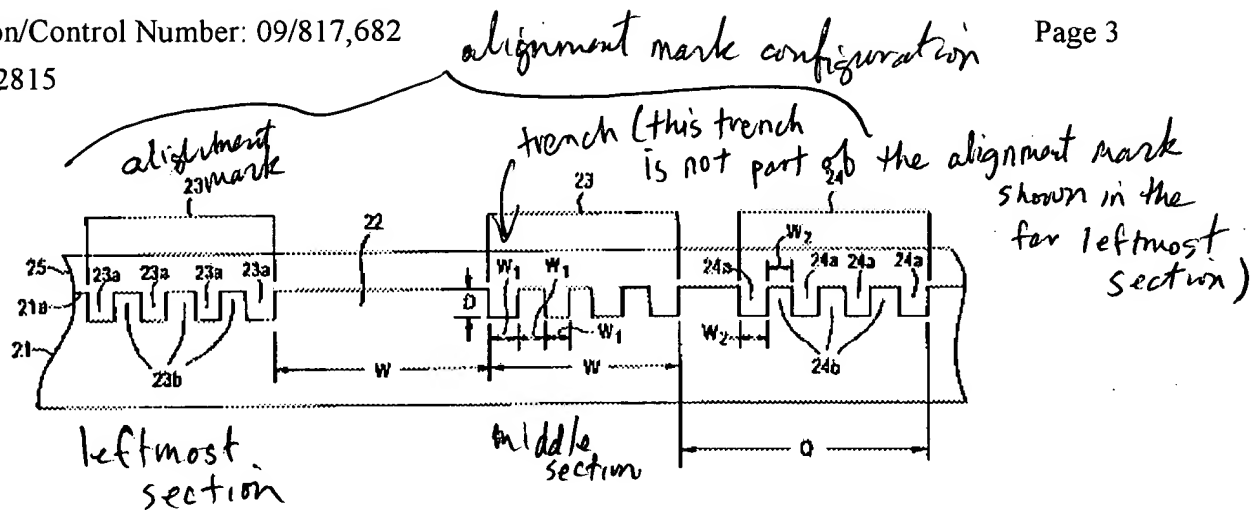 on/Control Number: 09/817,682 Page 3
2815
alignment mark configuration
alignment mark
trench (this trench
is not part of the alignment mark
shown in the
far leftmost
section)
23 23 24
22
W2
25 23a 23a 23a 23a W1 W1 24a 24a 24a 24a
21a D
21 23b W1 W2 24b
W W
Q
leftmost
section
middle
section